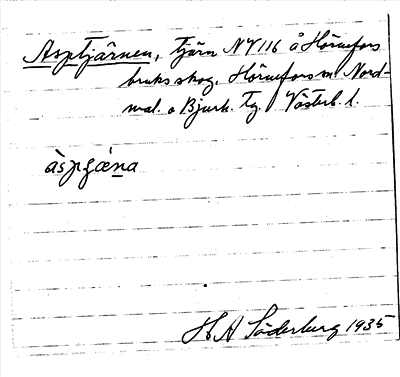 Asptjärnen, tjärn NV 116 å Hörnefors
bruks skog. Hörnefors sn. Nord-
mal. o Bjurh. tg. Västerb. l.
àspɟǽna
H A Söderberg 1935